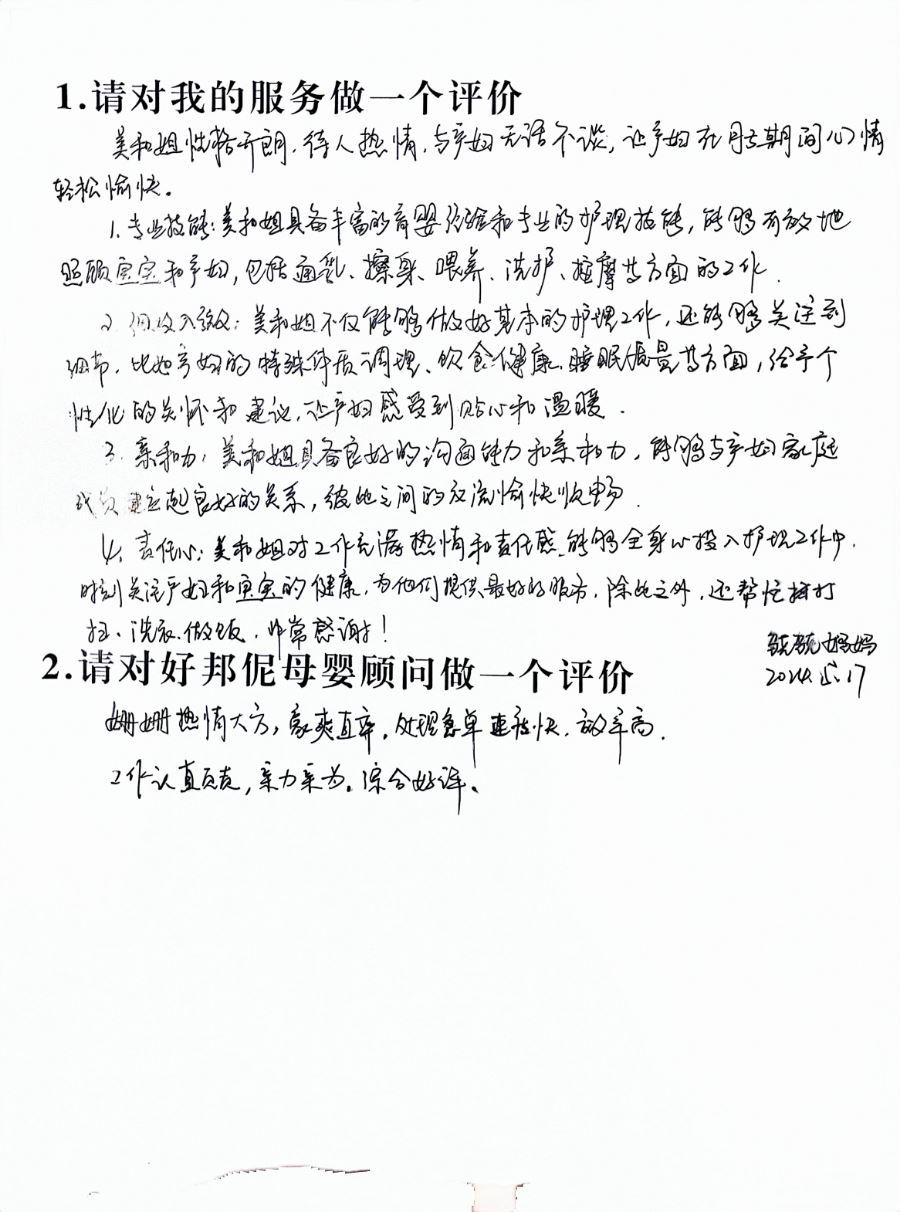 1.请对我的服务做一个评价
美和姐性格开朗,待人热情,与产妇无话不谈,让产妇在月子期间心情
轻松愉快。
1.专业技能:美和姐具备丰富的育婴经验和专业的护理技能,能够有效地
照顾宝宝和产妇,包括通乳、擦身、喂养、洗护、按摩等方面的工作.
2.细致入微:美和姐不仅能够做好基本的护理工作,还能够关注到
细节,比如产妇的特殊体质调理、饮食健康、睡眠质量等方面,给予个
性化的关怀和建议,让产妇感受到贴心和温暖.
3.亲和力:美和姐具备良好的沟通能力和亲和力,能够与产妇家庭
成员建立起良好的关系,彼此之间的交流愉快顺畅.
4.责任心:美和姐对工作充满热情和责任感,能够全身心投入护理工作中,
时刻关注产妇和宝宝的健康,为他们提供最好的服务,除此之外,还帮忙择打
扫、洗衣、做饭,非常感谢!
妈妈
2024.5.17
2.请对好邦伲母婴顾问做一个评价
姗姗热情大方,豪爽直率,处理急单速度快,效率高.
工作认真负责,亲力亲为。综合好评、